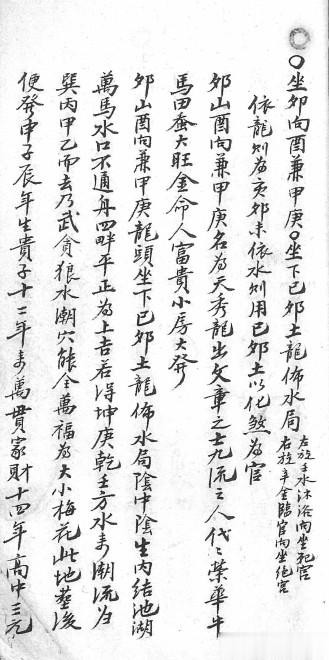 ○坐卯向酉兼甲庚○坐下己卯土龍佈水局
左旋壬水沐浴向坐死宮
右旋辛金臨官向坐絕宮
依龍則為亥卯未依水則用己卯土以化煞為官
卯山酉向兼甲庚名為天秀龍出文章之士九流之人代〻榮華牛
馬田蚕大旺金命人富貴小房大發
卯山酉向兼甲庚龍頭坐下己卯土龍佈水局陰中陰生內結池湖
萬馬水口不通舟四畔平正為上吉若得坤庚乾壬方水来潮流為
巽丙甲乙而去乃武貪狼水潮穴能全萬福為大小梅花此地塟後
便發申子辰年生貴子十二年来萬貫家財十四年高中三元